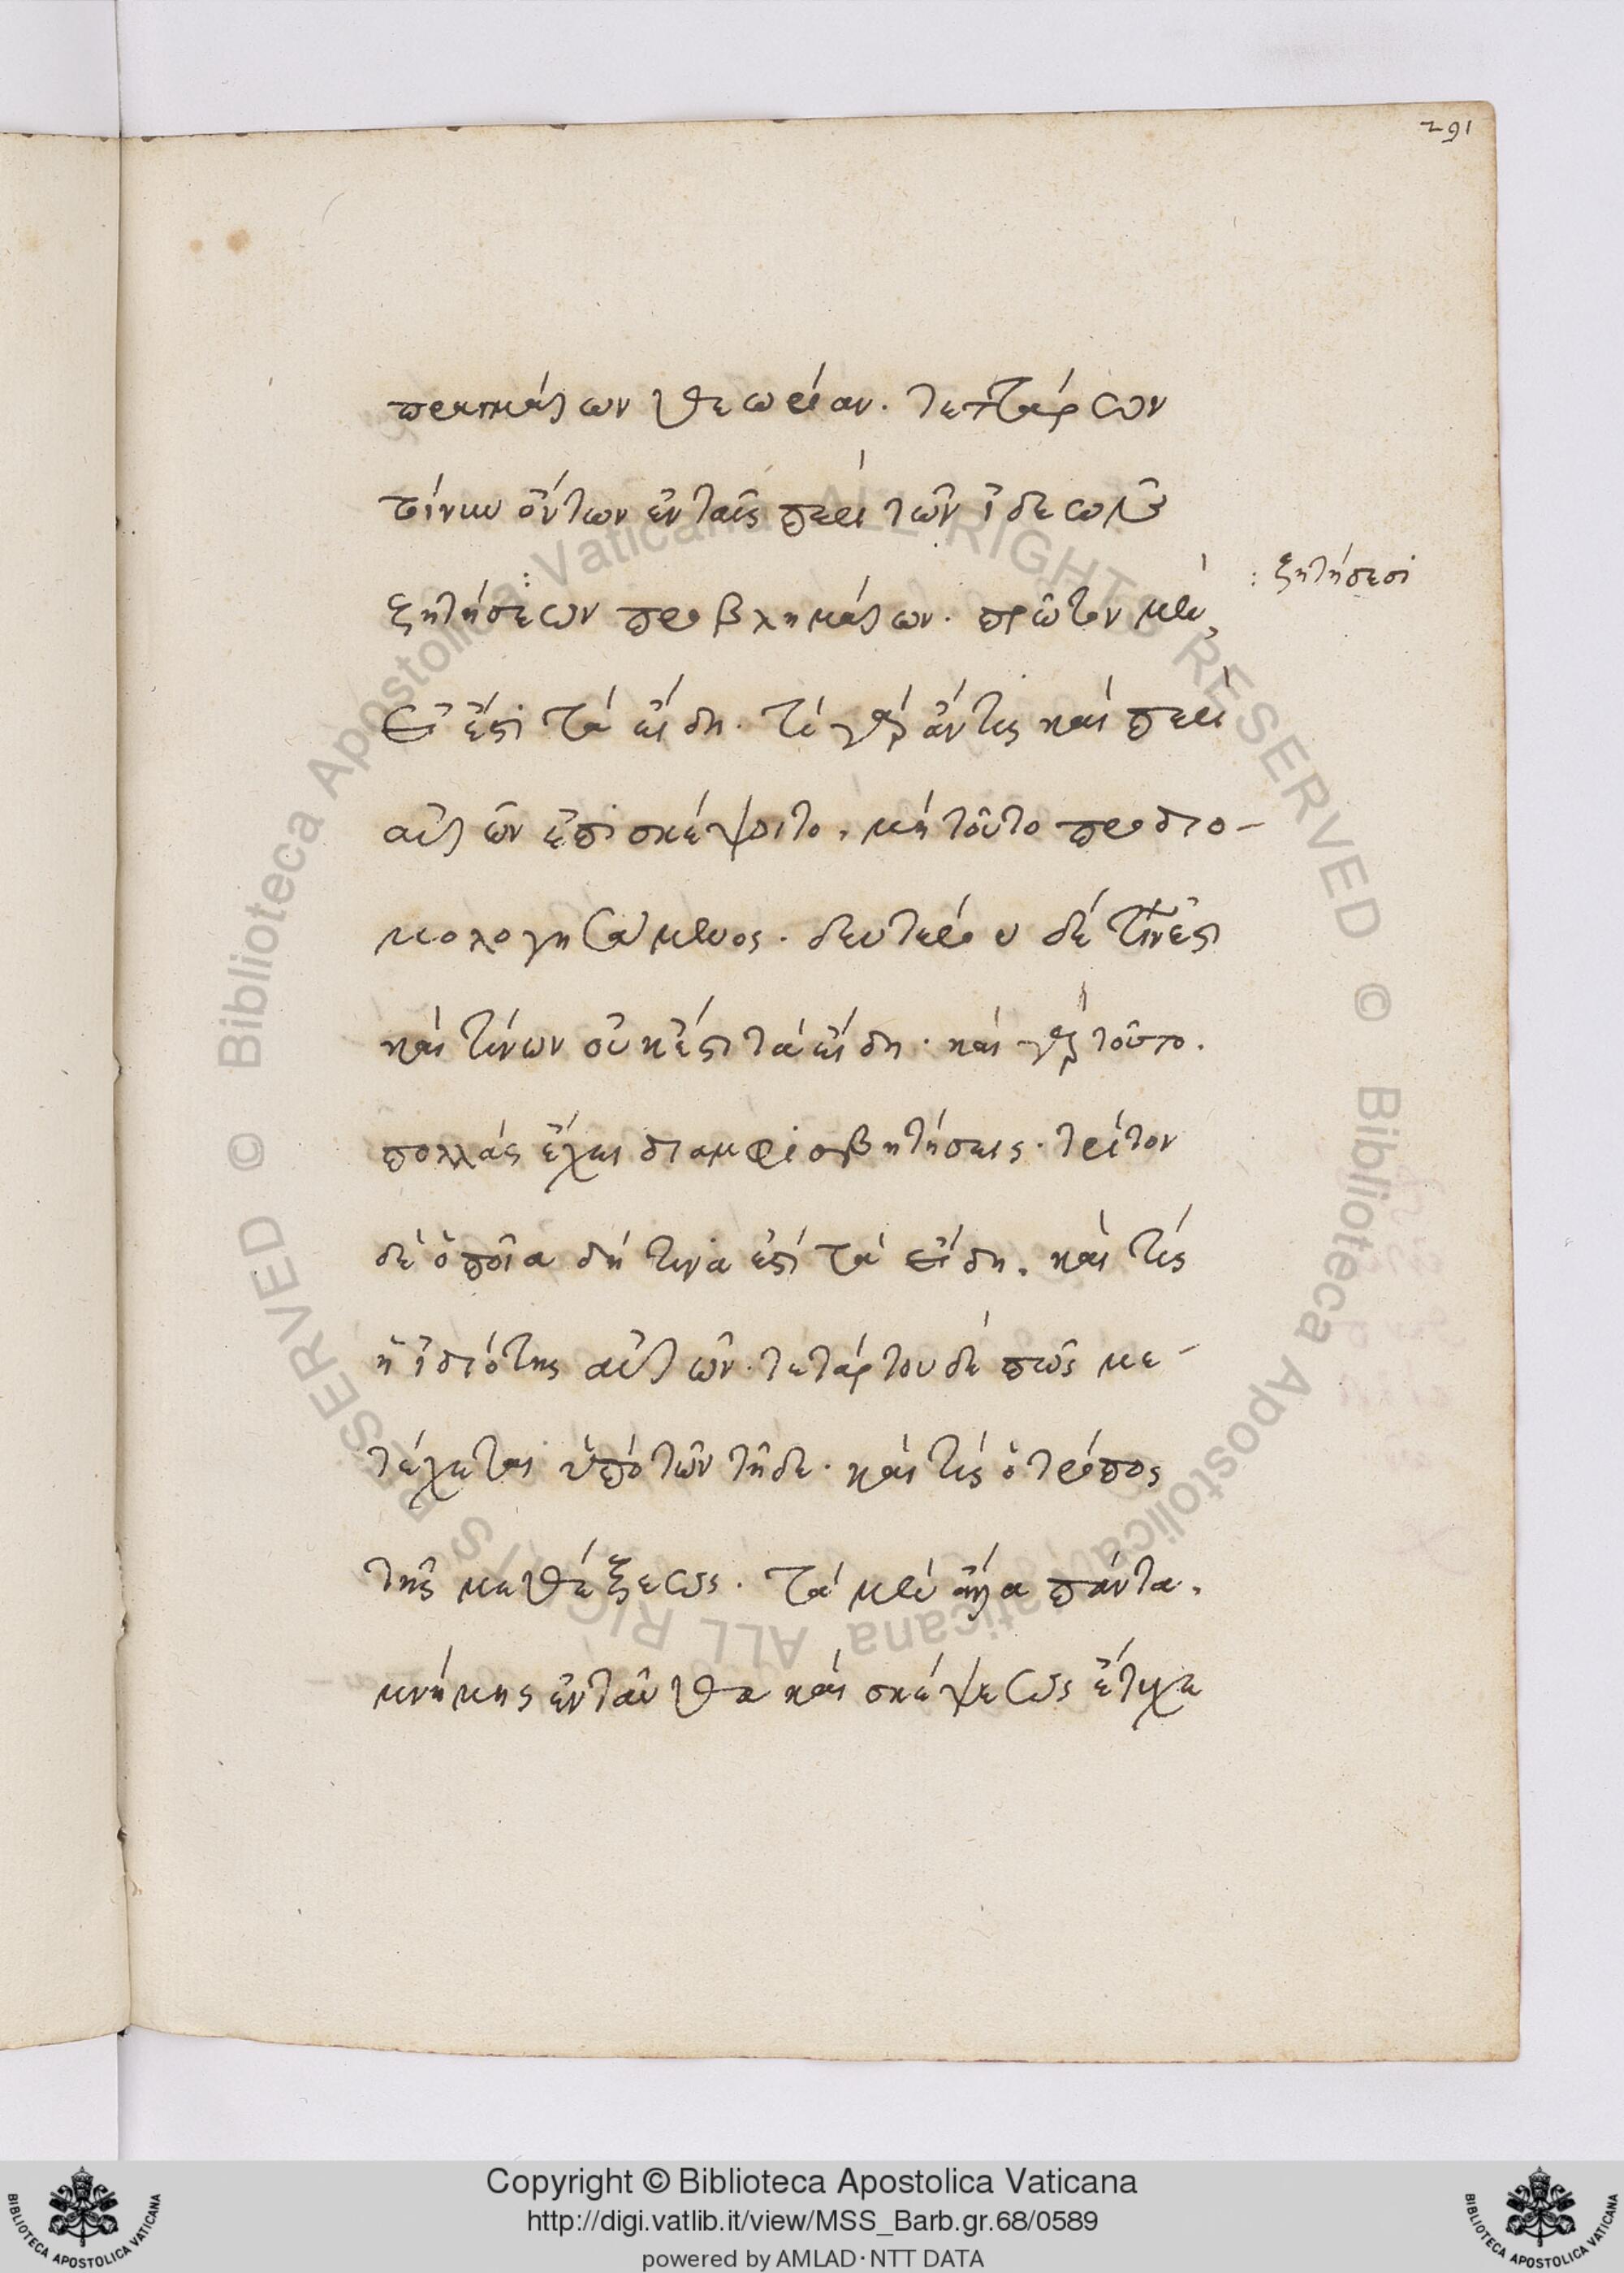 291
πραγμάτων θεωρίαν. τεττάρων
τοίνυν ὄντων ἐν ταῖς περὶ τῶν ἰδεῶν
ζητήσεων προβλημάτων. πρῶτον μὲν,
: ζητήσεσι
εἰ ἔστι τὰ εἴδη. τί γὰρ ἄν τις καὶ περὶ
αὐτῶν ἐπισκέψοιτο, μὴ τοῦτο προδιο-
μολογησάμενος. δευτέρου δέ τίνων ἐστι
καὶ τίνων οὐκ ἔστι τὰ εἴδη. καὶ γὰρ τοῦτο.
πολλὰς ἔχει διαμφισβητήσεις. τρίτον
δὲ ὁποῖα δή τινά ἐστι τὰ εἴδη. καὶ τίς
ἡ ἰδιότης αὐτῶν. τετάρτου δὲ πῶς με-
τέχεται ὑπὸ τῶν τῇδε. καὶ τίς ὁ τρόπος
τῆς μεθέξεως. τὰ μὲν ἄλλα πάντα,
μνήμης ἐνταῦθα καὶ σκέψεως ἔτυχε
© Biblioteca Apostolica Vaticana ALL RIGHTS RESERVED © Biblioteca Apostolica Vaticana ALL RIGHTS RESERVED
BIBLIOTECA APOSTOLICA VATICANA
Copyright © Biblioteca Apostolica Vaticana
http://digi.vatlib.it/view/MSS_Barb.gr.68/0589
powered by AMLAD·NTT DATA
BIBLIOTECA APOSTOLICA VATICANA